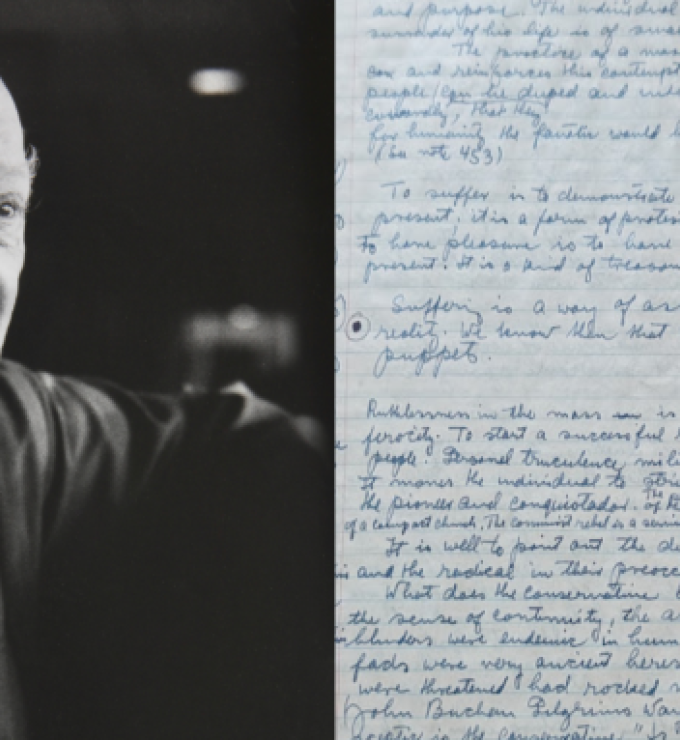 and purpose. The individual
surrender of his life is of small
The practice of a mass
and reinforces this contempt
people can be duped and
cowardly, that they
for humanity the fanatic would
(See note 453)
To suffer is to demonstrate
present; it is a form of protest
To have pleasure is to have
present. It is a kind of treason
Suffering is a way of as
reality. We know then that
puppets.
Ruthlessness in the mass is
ferocity. To start a successful
people. Personal truculence mili
It moves the individual to stri
the pioneer and conquistador. The
of a compact church. The communist rebel is a
It is well to point out the de
and the radical in their preocc
What does the conservative
the sense of continuity, the a
blunders were endemic in hum
fads were very ancient heres
were threatened had rocked
John Buchan Pilgrims Way
is the conservative "